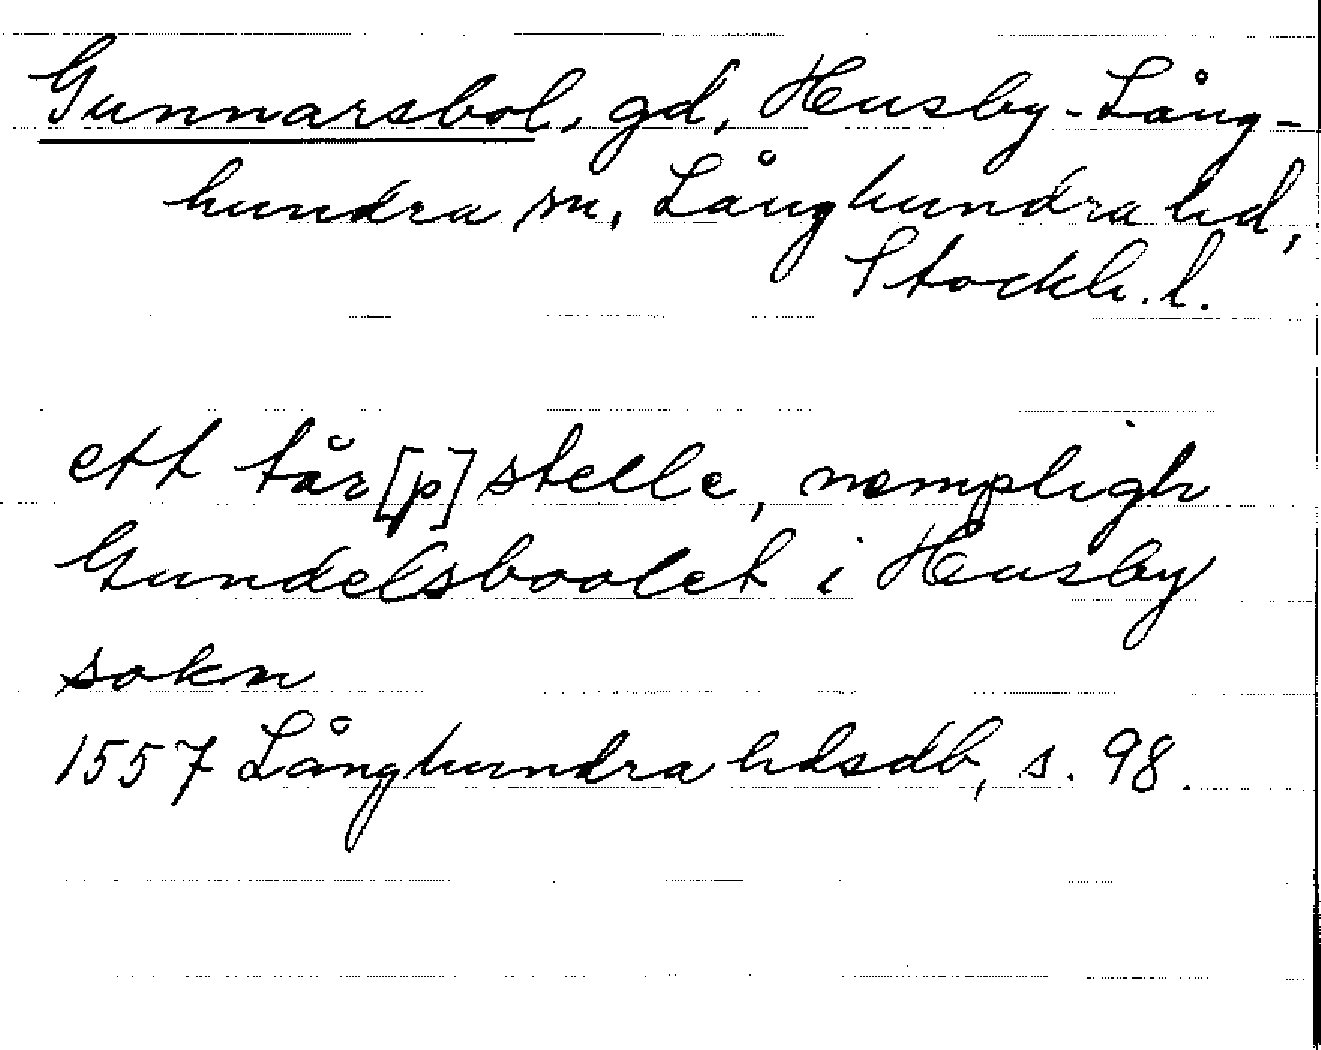 Gunnarsbol, gd, Husby-Lång-
hundra sn, Långhundra hd,
Stockh. l.
ett tår[p]stelle, nempligh
Gundelsboolet i Husby
sokn
1557 Långhundra hdsdb, s. 98.